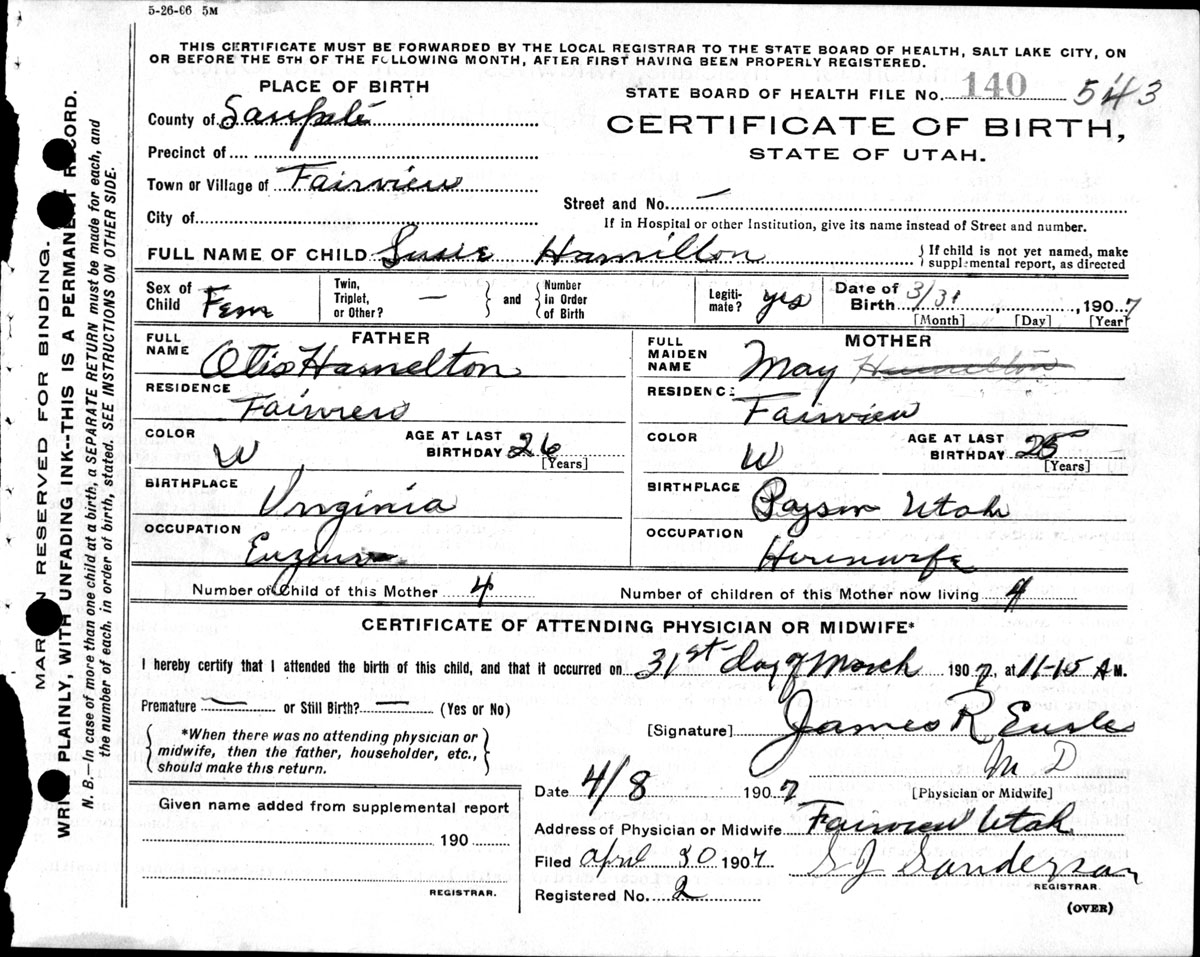 5-26-06 5M
THIS CERTIFICATE MUST BE FORWARDED BY THE LOCAL REGISTRAR TO THE STATE BOARD OF HEALTH, SALT LAKE CITY, ON
OR BEFORE THE 5TH OF THE FOLLOWING MONTH, AFTER FIRST HAVING BEEN PROPERLY REGISTERED.
PLACE OF BIRTH
STATE BOARD OF HEALTH FILE No. 140 543
County of Sanpete
CERTIFICATE OF BIRTH,
STATE OF UTAH.
Precinct of
Town or Village of Fairview
Street and No. —
City of
If in Hospital or other Institution, give its name instead of Street and number.
FULL NAME OF CHILD Susie Hamilton
{If child is not yet named, make
supplemental report, as directed
Sex of Child Fem
Twin, Triplet, or Other? —
and
Number in Order of Birth
Legiti-mate? yes
Date of Birth 3/31, 1907
[Month] [Day] [Year]
FATHER
FULL NAME Otis Hamelton
RESIDENCE Fairview
COLOR W
AGE AT LAST BIRTHDAY 26
[Years]
BIRTHPLACE Virginia
OCCUPATION
MOTHER
FULL MAIDEN NAME May Hamelton
RESIDENCE Fairview
COLOR W
AGE AT LAST BIRTHDAY 25
[Years]
BIRTHPLACE Payson Utah
OCCUPATION Housewife
Number of Child of this Mother 4
Number of children of this Mother now living 4
CERTIFICATE OF ATTENDING PHYSICIAN OR MIDWIFE*
I hereby certify that I attended the birth of this child, and that it occurred on 31st day of March 1907, at 11-15 AM.
Premature — or Still Birth? — (Yes or No)
*When there was no attending physician or
midwife, then the father, householder, etc.,
should make this return.
[Signature] James R
M D
[Physician or Midwife]
Date 4/8 1907
Address of Physician or Midwife Fairview Utah
Filed April 30 1907
S J Sanderson
REGISTRAR.
Registered No. 2
(OVER)
Given name added from supplemental report
190
REGISTRAR.
MARGIN RESERVED FOR BINDING.
WRITE PLAINLY, WITH UNFADING INK--THIS IS A PERMANENT RECORD.
N. B.—In case of more than one child at a birth, a SEPARATE RETURN must be made for each, and
the number of each, in order of birth, stated. SEE INSTRUCTIONS ON OTHER SIDE.